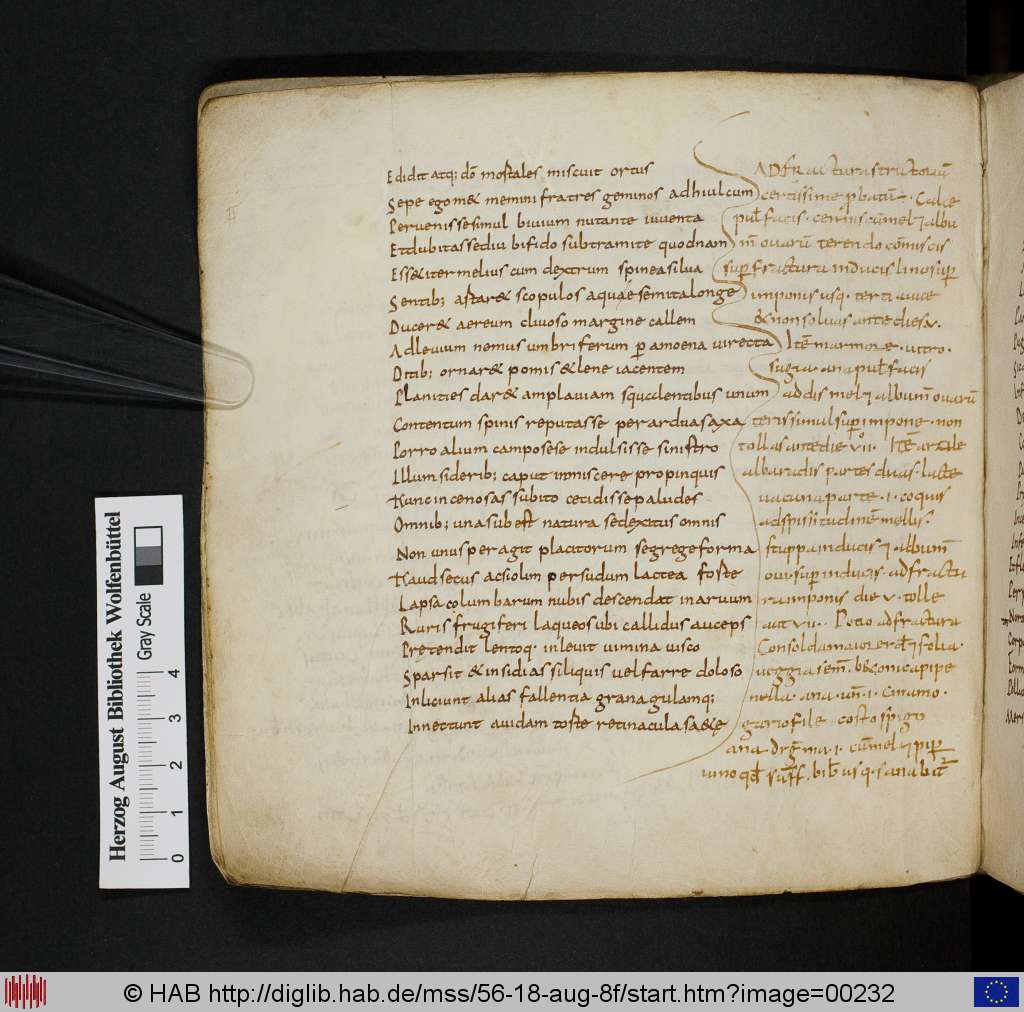 Edidit atq; dō mortales miscuit ortus
Sepe ego & memini fratres geminos ad hiulcum
Pervenisse simul bivium nutante iuventa
Et dubitasse diu bifido sub tramite quodnam
Ess& iter melius cum dextrum spinea silva
Sentib; astar& scopulos aquae semita longe
Ducer& aereum clivoso margine callem
At levium nemus umbriferum p amoena virecta
Ditib; ornar& pomis & lene iacentem
Planities dar& amplaviam squalentibus unum
Contentum spinis reputasse per ardua saxa
Porro alium campo sese indulsisse sinistro
Illum siderib; caput inmiscere propinquis
Hunc in cenosas subito cecidisse paludes
Omnib; una subest natura sed exitus omnis
Non unus peragit placitorum segrege forma
Haud secus ac siolim per sudum lactea foste
Lapsa columbarum nubis descendat in arvum
Ruris frugiferi laqueos ubi callidus auceps
Pretendit lentoq; inlevit vimina visco
Sparsit & insidias siliquis vel farre doloso
Inliciunt alias fallentia grana gulamq;
Innectunt avidam toste retinacula sa&e
AD fracturas tructoruū
certissime pbatū. Calce
pul facis. cernis cū mel & albu
m ovarū terendo cōmiscis
sup fractura inducis lino sup
inponis usq. terti. vice
& non solvas ante dies x.
Itē marmore. vitro.
sugia. ana pul facis
addis mel & albumē ovarū
teris simul sup inpone. non
tollas ante die VII. Itē arcile
alba radis partes duas. lacte
vacuna parte. I. coquis
ad spissitudinē mellis.
stuppa inducis & albumē
ovi sup inducis ad fractu
ra inponis die V. tolle
aut VII. Potio ad fractura
Consolda maiore rad & folia
pipe
nella. ana un. I. Cinamo.
gariofile costo spigu
ana drgma. I. cū mel & pip
vino qd suff. bib usq. sanabit
HAB
Herzog August Bibliothek Wolfenbüttel
Gray Scale
0 1 2 3 4
© HAB http://diglib.hab.de/mss/56-18-aug-8f/start.htm?image=00232